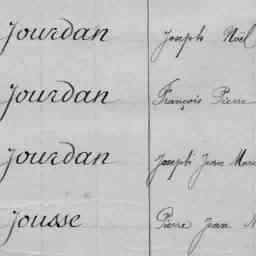 Jourdan Joseph Noël
Jourdan François Pierre
Jourdan Joseph Jean Marie
Jousse Pierre Jean M